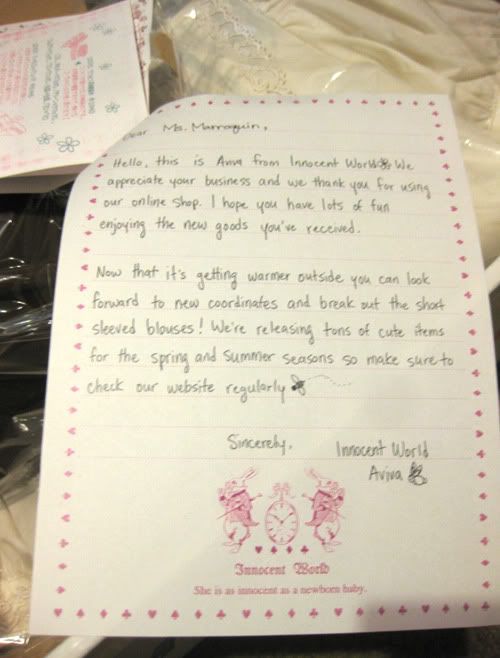 Dear Ms. Marroquin,
Hello, this is Aviva from Innocent World We
appreciate your business and we thank you for using
our online shop. I hope you have lots of fun
enjoying the new goods you've received.
Now that it's getting warmer outside you can look
forward to new coordinates and break out the short
sleeved blouses! We're releasing tons of cute items
for the spring and summer seasons so make sure to
check our website regularly
Sincerely,
Innocent World
Aviva
Innocent World
She is as innocent as a newborn baby.